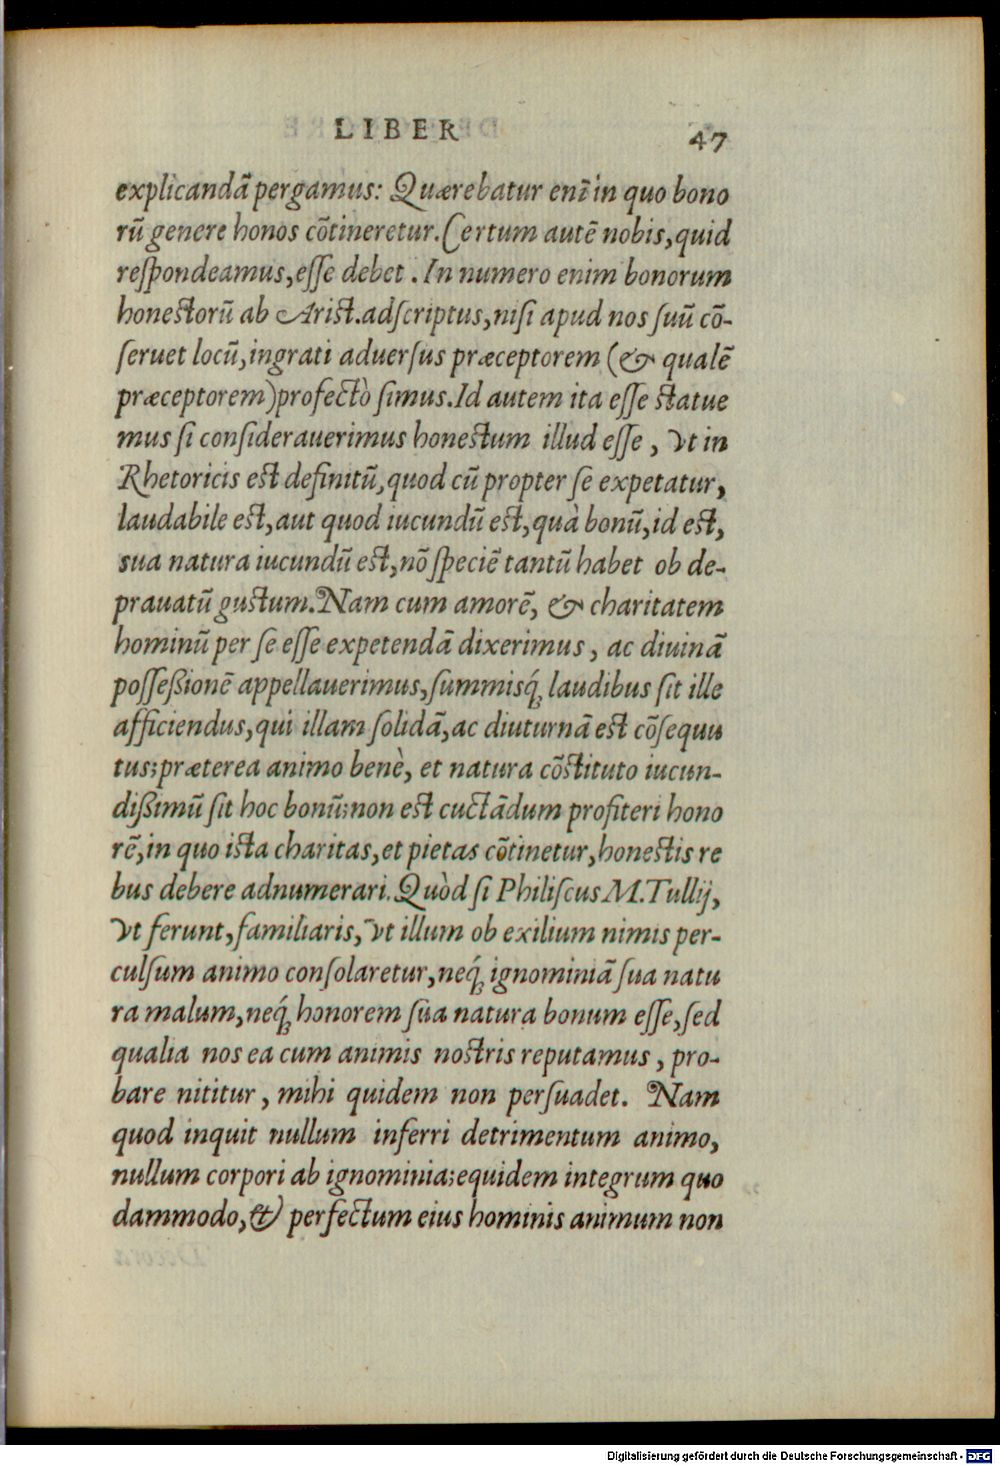 LIBER 47
explicandã pergamus: Quærebatur enĩ in quo bono
rũ genere honos cõtineretur. Certum autẽ nobis, quid
reſpondeamus, eſſe debet . In numero enim bonorum
honeſtorũ ab Ariſt. adſcriptus, niſi apud nos ſuũ cõ-
ſeruet locũ, ingrati aduerſus præceptorem (& qualẽ
præceptorem) profectò ſimus. Id autem ita eſſe ſtatue
mus ſi conſiderauerimus honeſtum illud eſſe , vt in
Rhetoricis eſt definitũ, quod cũ propter ſe expetatur,
laudabile eſt, aut quod iucundũ eſt, quà bonũ, id eſt,
sua natura iucundũ eſt, nõ ſpeciẽ tantũ habet ob de-
prauatũ guſtum. Nam cum amorẽ, & charitatem
hominũ per ſe eſſe expetendã dixerimus , ac diuinã
poſſeßionẽ appellauerimus, ſummisq́; laudibus ſit ille
afficiendus, qui illam ſolidã, ac diuturnã eſt cõſequu
tus; præterea animo benè, et natura cõſtituto iucun-
dißimũ ſit hoc bonũ; non eſt cuctãdum profiteri hono
rẽ, in quo iſta charitas, et pietas cõtinetur, honeſtis re
bus debere adnumerari. Quòd ſi Philiſcus M. Tullij,
vt ferunt, familiaris, vt illum ob exilium nimis per-
culſum animo conſolaretur, neq́; ignominiã ſua natu
ra malum, neq́; honorem ſua natura bonum eſſe, ſed
qualia nos ea cum animis noſtris reputamus , pro-
bare nititur , mihi quidem non perſuadet. Nam
quod inquit nullum inferri detrimentum animo,
nullum corpori ab ignominia; equidem integrum quo
dammodo, & perfectum eius hominis animum non
Digitalisierung gefördert durch die Deutsche Forschungsgemeinschaft - DFG